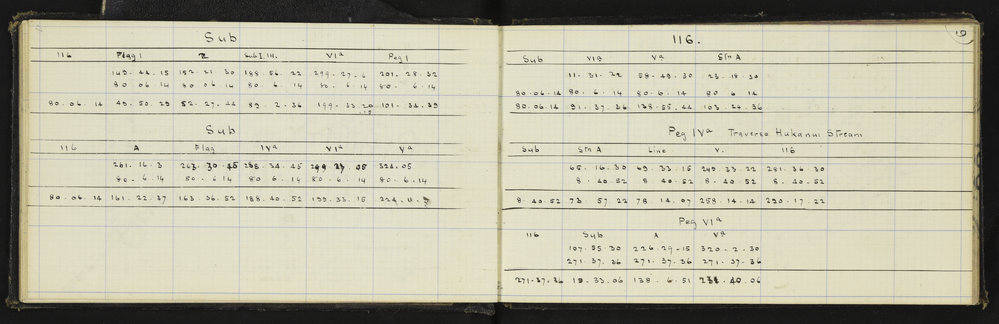 Sub
116 Flag I II Sub I III. VIa Peg 1
80 . 06 . 14 80 06 14 80 . 6 . 14 80 . 6 . 14 80 . 6 . 14
80 . 06 . 14 49 . 50 . 29 52 . 27 . 44 89 . 2 . 36 101 . 34 . 39
Sub
116 A Flag IVa VIa Va
261 . 16 . 3 268 . 34 . 45 324 . 05
80 . 6 . 14 80 . 6 . 14 80 6 . 14 80 . 6 . 14 80 . 6 . 14
80 . 06 . 14 161 . 22 . 37 163 . 36 . 52 188 . 40 . 52 199 . 33 . 15
116.
Sub VIB Va Stn A
11 . 31 . 22 58 . 49 . 30 23 . 18 . 30
80 . 06 . 14 80 . 6 . 14 80 . 6 . 14 80 6 14
80 . 06 . 14 91 . 37 . 36 138 . 55 . 44 103 . 24 . 36
Peg IVa Traverse Hukanui Stream
Sub Stn A Line V. 116
65 . 16 . 30 69 . 33 . 15 249 . 33 . 22 281 . 36 . 30
8 . 40 . 52 8 . 40 . 52 8 . 40 . 52 8 . 40 . 52
8 . 40 . 52 73 . 57 . 22 78 . 14 . 07 258 . 14 . 14 290 . 17 . 22
Peg VIa
116 Sub A Va
107 . 55 . 30 226 . 29 . 15 320 . 2 . 30
271 . 37 . 36 271 . 37 . 36 271 . 37 . 36
271 . 37 . 36 19 . 33 . 06 138 . 6 . 51